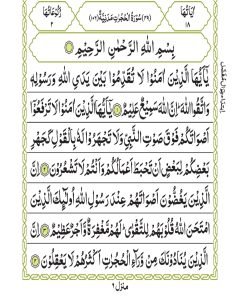 اٰیَاتُهَا ١٨
(٤٩) سُوْرَةُ الْحُجُرٰتِ مَدَنِیَّةٌ (١٠٦)
رُكُوْعَاتُهَا ٢
بِسْمِ اللهِ الرَّحْمٰنِ الرَّحِیْمِ
یٰۤاَیُّهَا الَّذِیْنَ اٰمَنُوْا لَا تُقَدِّمُوْا بَیْنَ یَدَیِ اللهِ وَرَسُوْلِهٖ
وَاتَّقُوا اللهَ ؕ اِنَّ اللهَ سَمِیْعٌ عَلِیْمٌ ۝١ یٰۤاَیُّهَا الَّذِیْنَ اٰمَنُوْا لَا تَرْفَعُوْۤا
اَصْوَاتَكُمْ فَوْقَ صَوْتِ النَّبِیِّ وَلَا تَجْهَرُوْا لَهٗ بِالْقَوْلِ كَجَهْرِ
بَعْضِكُمْ لِبَعْضٍ اَنْ تَحْبَطَ اَعْمَالُكُمْ وَاَنْتُمْ لَا تَشْعُرُوْنَ ۝٢ اِنَّ
الَّذِیْنَ یَغُضُّوْنَ اَصْوَاتَهُمْ عِنْدَ رَسُوْلِ اللهِ اُولٰٓئِكَ الَّذِیْنَ
امْتَحَنَ اللهُ قُلُوْبَهُمْ لِلتَّقْوٰی ؕ لَهُمْ مَّغْفِرَةٌ وَّاَجْرٌ عَظِیْمٌ ۝٣ اِنَّ
الَّذِیْنَ یُنَادُوْنَكَ مِنْ وَّرَآءِ الْحُجُرٰتِ اَكْثَرُهُمْ لَا یَعْقِلُوْنَ ۝٤
منزل ٦